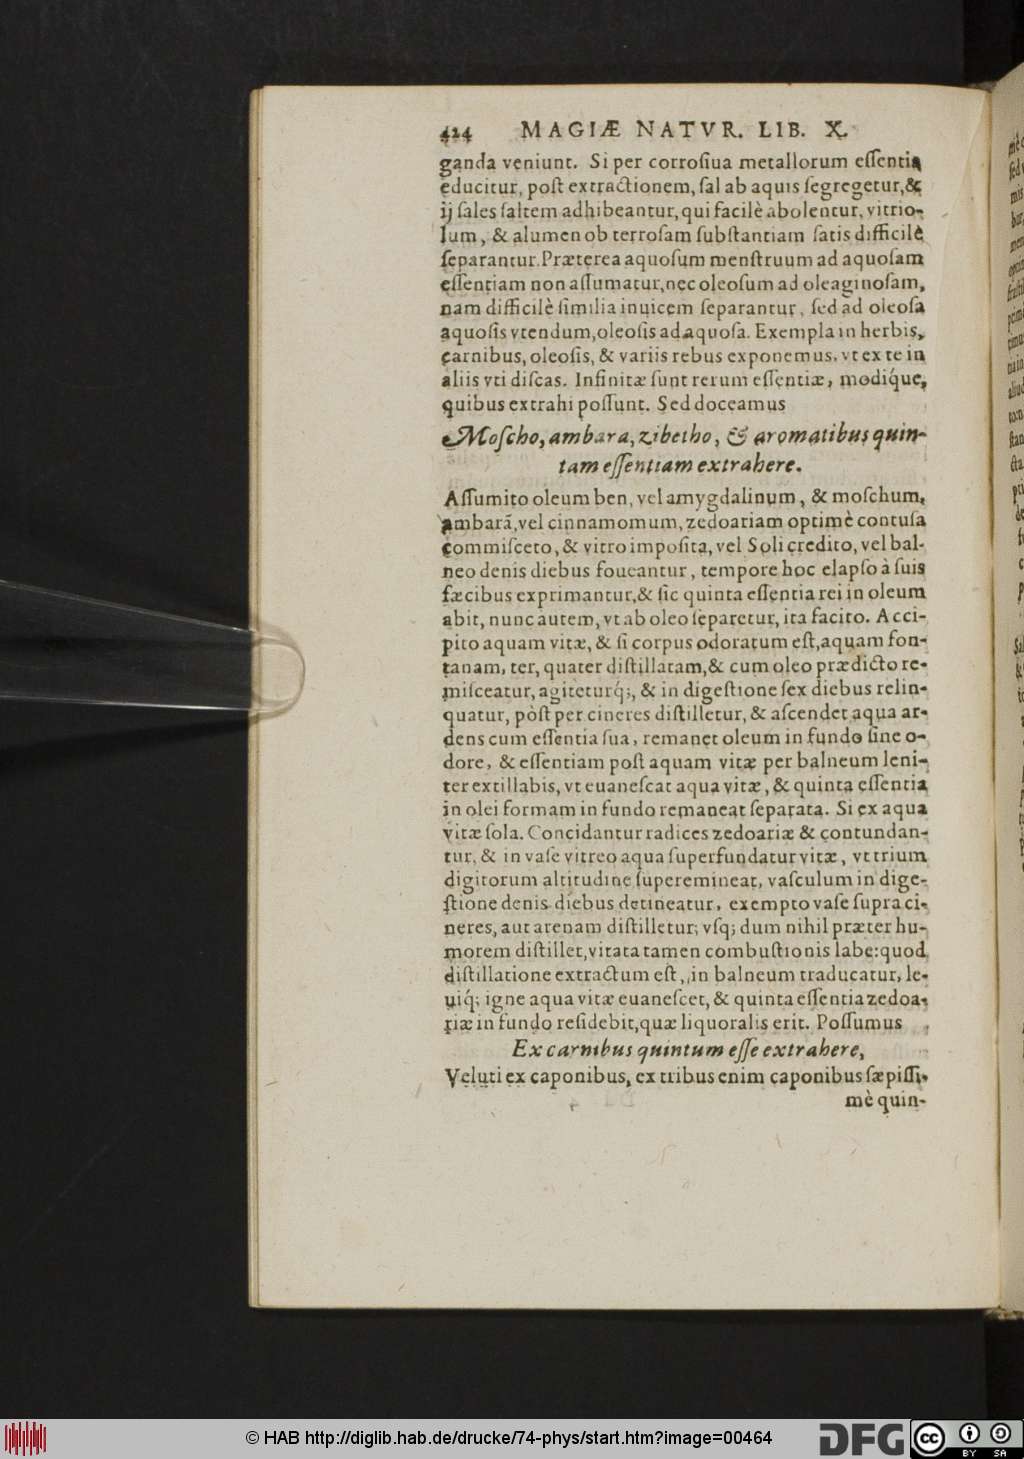 424 MAGIÆ NATVR. LIB. X.
ganda veniunt. Si per corroſiua metallorum eſſentia
educitur, poſt extractionem, ſal ab aquis ſegregetur, &
ij ſales ſaltem adhibeantur, qui facilè abolentur, vitrio-
lum, & alumen ob terroſam ſubſtantiam ſatis difficilè
ſeparantur. Præterea aquoſum menſtruum ad aquoſam
eſſentiam non aſſumatur, nec oleoſum ad oleaginoſam,
nam difficilè ſimilia inuicem ſeparantur, ſed ad oleoſa
aquoſis vtendum, oleoſis ad aquoſa. Exempla in herbis,
carnibus, oleoſis, & variis rebus exponemus, vt ex te in
aliis vti diſcas. Infinitæ ſunt rerum eſſentiæ, modiq́ue,
quibus extrahi poſſunt. Sed doceamus
Moſcho, ambara, zibetho, & aromatibus quin-
tam eſſentiam extrahere.
Aſſumito oleum ben, vel amygdalinum, & moſchum,
ambarã, vel cinnamomum, zedoariam optimè contuſa
commiſceto, & vitro impoſita, vel Soli credito, vel bal-
neo denis diebus foueantur, tempore hoc elapſo à ſuis
fæcibus exprimantur, & ſic quinta eſſentia rei in oleum
abit, nunc autem, vt ab oleo ſeparetur, ita facito. Acci-
pito aquam vitæ, & ſi corpus odoratum eſt, aquam fon-
tanam, ter, quater diſtillatam, & cum oleo prædicto re-
miſceatur, agiteturq́;, & in digeſtione ſex diebus relin-
quatur, pòſt per cineres diſtilletur, & aſcendet aqua ar-
dens cum eſſentia ſua, remanet oleum in fundo ſine o-
dore, & eſſentiam poſt aquam vitæ per balneum leni-
ter extillabis, vt euaneſcat aqua vitæ, & quinta eſſentia
in olei formam in fundo remaneat ſeparata. Si ex aqua
vitæ ſola. Concidantur radices zedoariæ & contundan-
tur, & in vaſe vitreo aqua ſuperfundatur vitæ, vt trium
digitorum altitudine ſuperemineat, vaſculum in dige-
ſtione denis diebus detineatur, exempto vaſe ſupra ci-
neres, aut arenam diſtilletur; vſq; dum nihil præter hu-
morem diſtillet, vitata tamen combuſtionis labe: quod
diſtillatione extractum eſt, in balneum traducatur, le-
uiq́; igne aqua vitæ euaneſcet, & quinta eſſentia zedoa-
riæ in fundo reſidebit, quæ liquoralis erit. Poſſumus
Ex carnibus quintum eſſe extrahere,
Veluti ex caponibus, ex tribus enim caponibus ſæpiſſi-
mè quin-
© HAB http://diglib.hab.de/drucke/74-phys/start.htm?image=00464
DFG
cc
BY SA